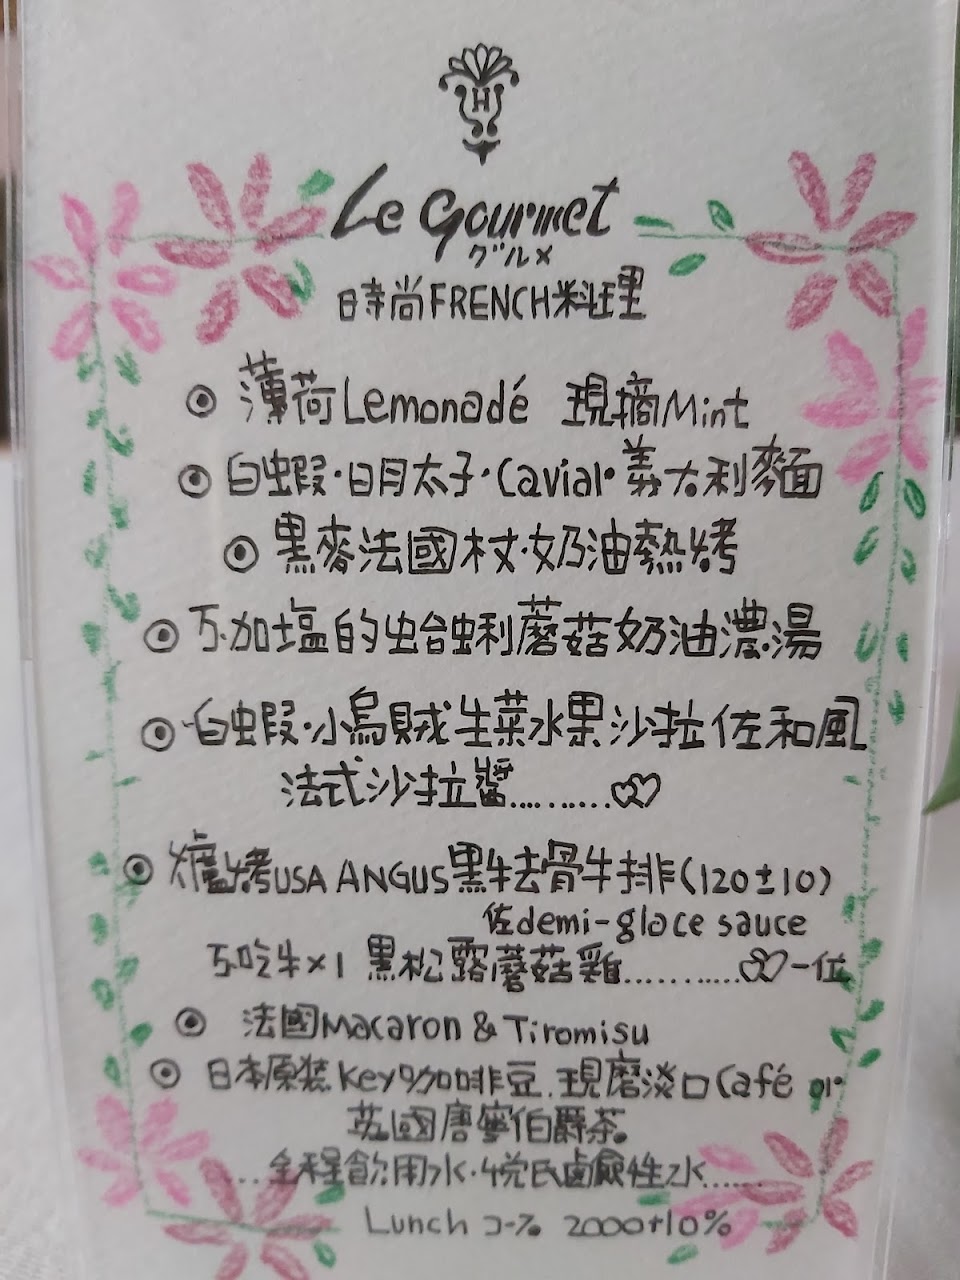 H
Le Gourmet
グルメ
時尚FRENCH料理
◉ 薄荷Lemonadé 現摘Mint
◉ 白蝦·明太子·Caviar·義大利麵
◉ 黑麥法國杖·奶油熱烤
◉ 不加塩的蛤蜊蘑菇奶油濃湯
◉ 白蝦·小烏賊生菜水果沙拉佐和風
法式沙拉醬.........
◉ 爐烤USA ANGUS黑牛去骨牛排(120±10)
佐demi-glace sauce
不吃牛×1 黑松露蘑菇雞...........一位
◉ 法國Macaron & Tiromisu
◉ 日本原装Key咖啡豆.現磨淡口Café or
英國唐寧伯爵茶
....全程飲用水·悅氏鹵鹼性水......
Lunch コース 2000+10%